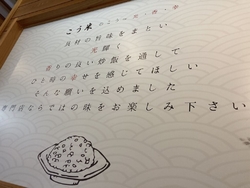 こう米
良質の旨味をまとい
光輝く
香りの良い炒飯を通して
ひと時の幸せを感じてほしい
そんな願いを込めました
専門店ならではの味をお楽しみ下さい